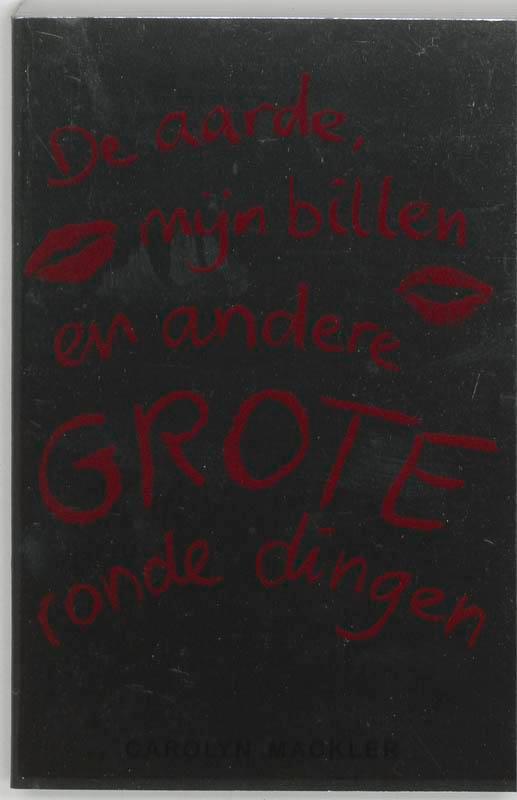 De aarde,
mijn billen
en andere
GROTE
ronde dingen
CAROLYN MACKLER